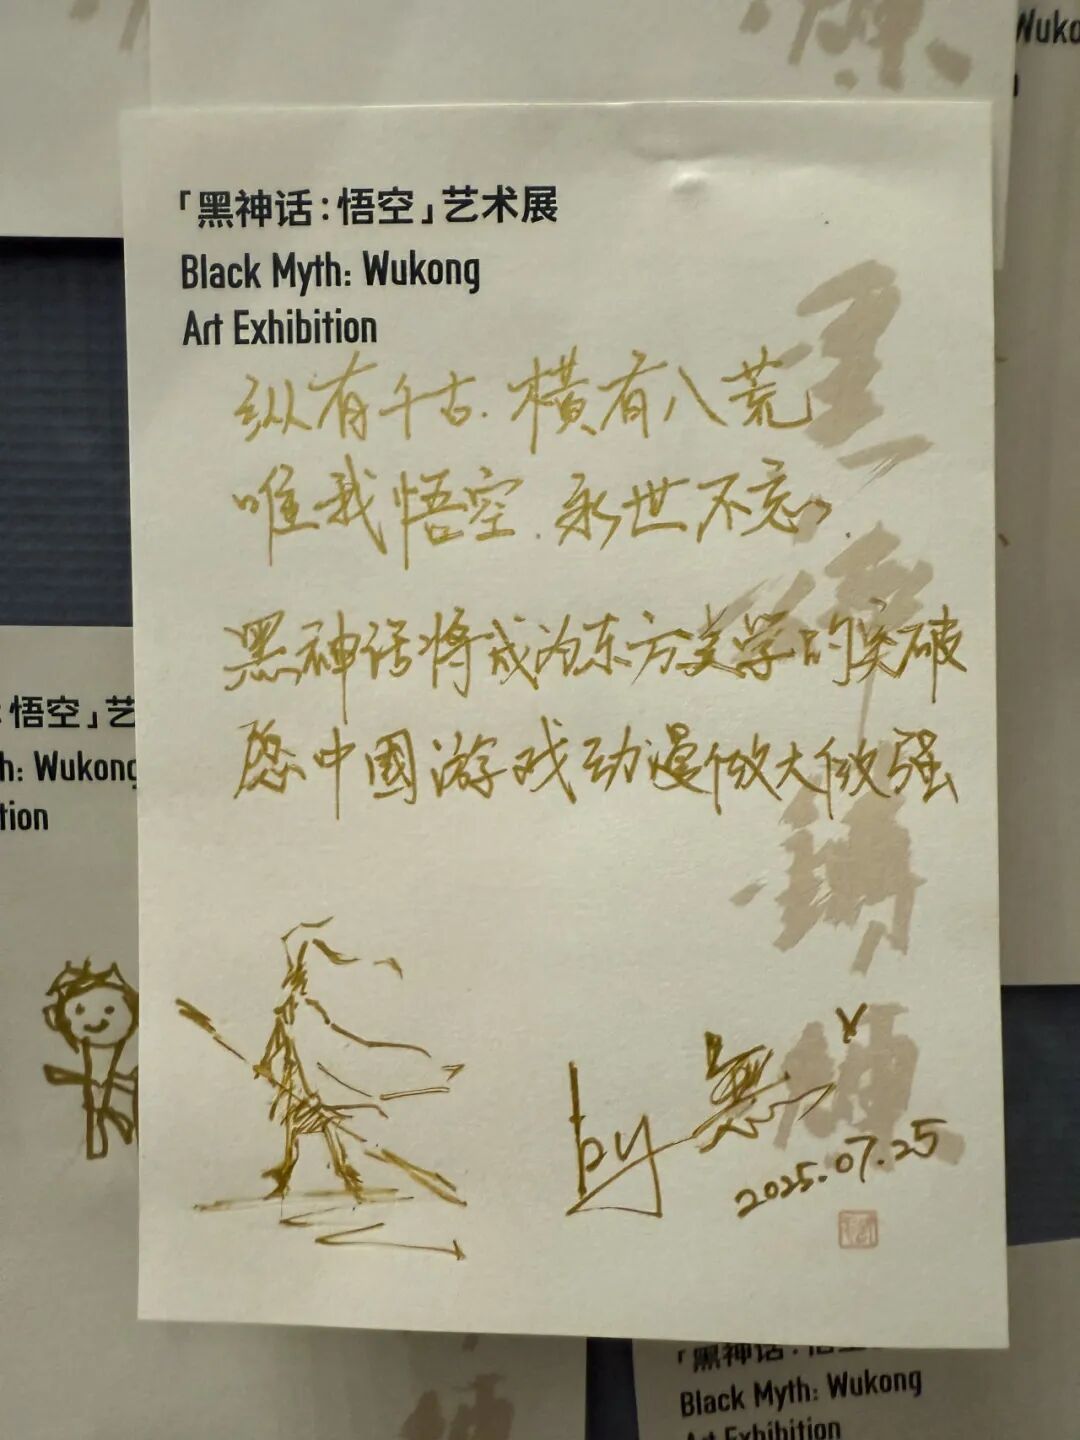 「黑神话：悟空」艺术展
Black Myth: Wukong
Art Exhibition
纵有千古.横有八荒
唯我悟空.永世不忘.
黑神话将成为东方美学的突破
愿中國游戏动漫做大做强
by
2025.07.25
Wuko
：悟空」艺
h: Wukong
tion
「黑神话：悟空
Black Myth: Wukong
Art Exhibition